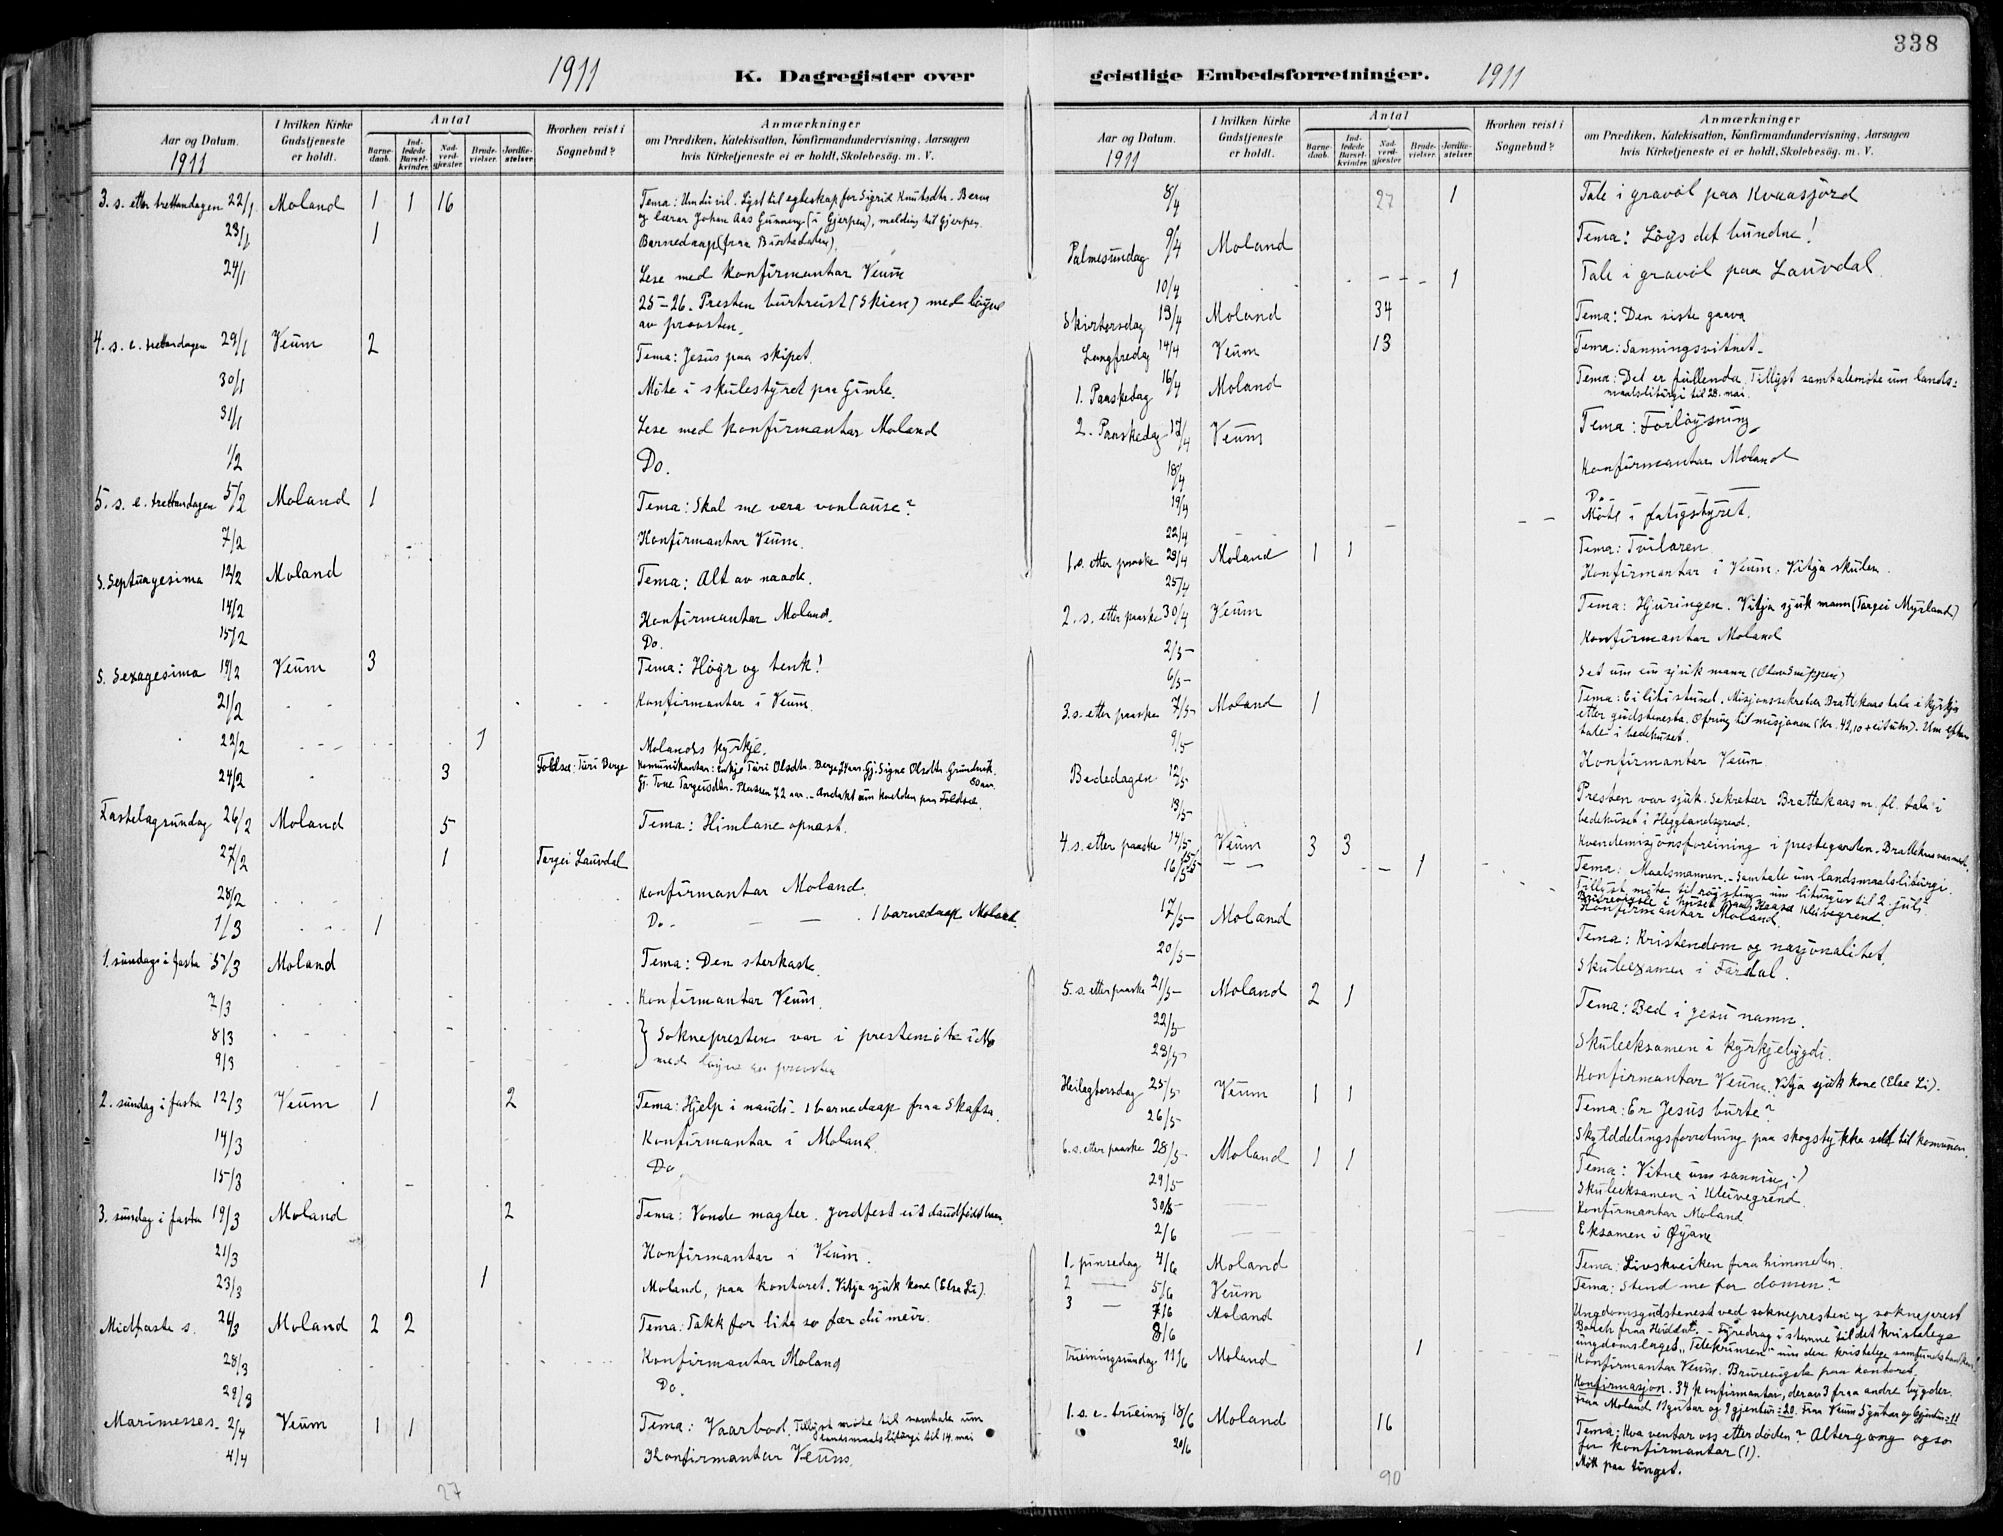 338
1911 K. Dagregister over
Aar og Datum. 1911
I hvilken Kirke Gudstjeneste er holdt.
Antal
Barnedaab. Indledede Barselkvinder. Nadverdgjester Brudevielser. Jordfæstelser.
Hvorhen reist i Sognebud?
Anmærkninger
om Prædiken, Katekisation, Konfirmandundervisning, Aarsagen
hvis Kirketjeneste ei er holdt, Skolebesög. m. V.
3. s. etter trettandagen 22/1 Moland 1 1 16 Tema: Lyst til egteskap for Sigrid Knutsdtr. Berne
og lærar Johan Aas Gunneng (i Gjerpen), melding til Gjerpen.
23/1 1 Barnedaap (fraa Burtedalen).
24/1 Lese med konfirmantar Veum
25-26. Presten burtreist (Skien) med løyve
av prosten.
4. s. e. trettandagen 29/1 Veum 2 Tema: Jesus paa skipet.
30/1 Møte i skulestyret paa Gimle.
31/1 Lese med konfirmantar Moland
1/2 Do.
5. s. e. trettandagen 5/2 Moland 1 Tema: Skal me vera vonlause?
7/2 Konfirmantar Veum.
S. Septuagesima 12/2 Moland Tema: Alt av naade.
14/2 Konfirmantar Moland.
15/2 Do.
S. Sexagesima 19/2 Veum 3 Tema: Høyr og tenk!
21/2 Konfirmantar i Veum.
22/2 1 Molands kyrkje.
24/2 3 Foldsæ: Turi Berge Komunikantar: enkje Turi Olsdtr. Berge aar. Gj. Signe Olsdtr. Grundvik 80 aar.
Gj. Tone Targeisdtr. 72 aar. - Andakt um kvelden paa Foldsæ.
Fastelagsundag 26/2 Moland 5 Tema: Himlane opnast.
27/2 1 Targei Lauvdal
28/2 Konfirmantar Moland.
1/3 1 Do. — — 1 barnedaap Moland.
1. sundag i fasta 5/3 Moland Tema: Den sterkaste.
7/3 Konfirmantar Veum.
8/3 } Soknepresten var i prestemøte i
9/3 med løyve av prosten
2. sundag i fasta 12/3 Veum 1 2 Tema: Hjelp i naudi - 1 barnedaap fraa Skafsa.
14/3 Konfirmantar i Moland.
15/3 Do
3. sundag i fasta 19/3 Moland 2 Tema: Vonde magter. Jordfest eit daudfødt barn.
21/3 Konfirmantar i Veum.
23/3 1 Moland, paa kontoret. Vitja sjuk kone (Else Li).
Midfaste s. 26/3 Moland 2 2 Tema: Takk for lite so fær du meir.
28/3 Konfirmantar Moland
29/3 Do.
Marimesses. 2/4 Veum 1 1 Tema: Vaarbod. Tillyst møte til samtale um
landsmaalsliturgi til 14. mai
4/4 Konfirmantar Veum.
27
geistlige Embedsforretninger. 1911
Aar og Datum. 1911
I hvilken Kirke Gudstjeneste er holdt.
Antal
Barnedaab. Indledede Barselkvinder. Nadverdgjester Brudevielser. Jordfæstelser.
Hvorhen reist i Sognebud?
Anmærkninger
om Prædiken, Katekisation, Konfirmandundervisning, Aarsagen
hvis Kirketjeneste ei er holdt, Skolebesög. m. V.
8/4 27 1 Tale i gravøl paa Kvaasjord
Palmesundag 9/4 Moland Tema: Løys det bundne!
10/4 1 Tale i gravøl paa Lauvdal.
Skirtorsdag 13/4 Moland 34 Tema: Den siste gaava
Langfredag 14/4 Veum 13 Tema: Sanningsvitnet.
1. Paaskedag 16/4 Moland Tema: Det er fullenda. Tillyst samtalemøte um lands-
maalsliturgi til 28. mai.
2. Paaskedag 17/4 Veum Tema: Forløysning
18/4 Konfirmantar Moland
19/4 Do —
22/4 Møte i fatigstyret.
1. s. etter paaske 23/4 Moland 1 1 Tema: Tvilaren.
25/4 Konfirmantar i Veum. Vitja skulen.
2. s. etter paaske 30/4 Veum Tema: Hyrdingen. Vitja sjuk mann (Targei Myrland)
2/5 - Konfirmantar Moland
6/5 - Set um ein sjuk mann (Olav)
3. s. etter paaske 7/5 - Moland 1 Tema: Ei liti stund. Misjonssekretær Brattekaas tala i kyrkja
etter gudstenesta. Ofring til misjonen (Kr. 42,10 + eit ur). Um eftan
tale i bedehuset.
9/5 Konfirmantar Veum.
Bededagen 12/5 Presten var sjuk. Sekretær Brattekaas m. fl. tala i
bedehuset i Hegglandsgrend.
13/5 Kvendemisjonsforeining i prestegarden. Brattekaas var med.
4. s. etter paaske 14/5 - Veum 3 3 Tema: Maalsmannen. - Samtale um landsmaalsliturgi.
Tillyst møte til røysting um liturgier til 2. juli.
16/5 — 1 Brurevigsle i huset paa Haasæ Kleivegrend.
17/5 - Moland Konfirmantar Moland.
Tema: Kristendom og nasjonalitet.
20/5 - Skuleexamen i Fardal.
5. s. etter paaske 21/5 - Moland 2 1 Tema: Bed i Jesu namn.
22/5 - Skuleeksamen i kyrkjebygdi.
23/5 - Konfirmantar Veum. Vitja sjuk kone (Else Li).
Heilagtorsdag 25/5 - Veum 1 1 Tema: Er Jesus burte?
26/5 - Skylddelingsforretning paa skogstykke seld til komunen.
6. s. etter paaske 28/5 - Moland 1 1 Tema: Vitne um sanning.
29/5 - Skuleeksamen i Kleivegrend.
30/5 - Konfirmantar Moland
2/6 Eksamen i Øyane
1. pinsedag 4/6 Moland Tema: Livskveiken fraa himmelen.
2 — 5/6 Veum Tema: Stend me for domen?
3 — 7/6 Moland Ungdomsgudstenest ved soknepresten og sokneprest
fraa Hviddal. - Fyredrag i stemne til det kristelege
ungdomslaget "Telekrinsen" um den kristelege samfundstanken!
8/6 1 Konfirmantar Veum. Brurevigsle paa kontoret.
Trueiningsundag 11/6 Moland Konfirmasjon. 34 konfirmantar, derav 3 fraa andre bygder.
Fraa Moland 11 gutar og 9 gjentur = 20. Fraa Veum 5 gutar og 6 gjentur = 11
1. s. e. trueining 18/6 Moland 16 Tema: Kva ventar oss etter døden? Altergang ogso
for konfirmantar (1).
20/6 Møtt paa tinget.
90